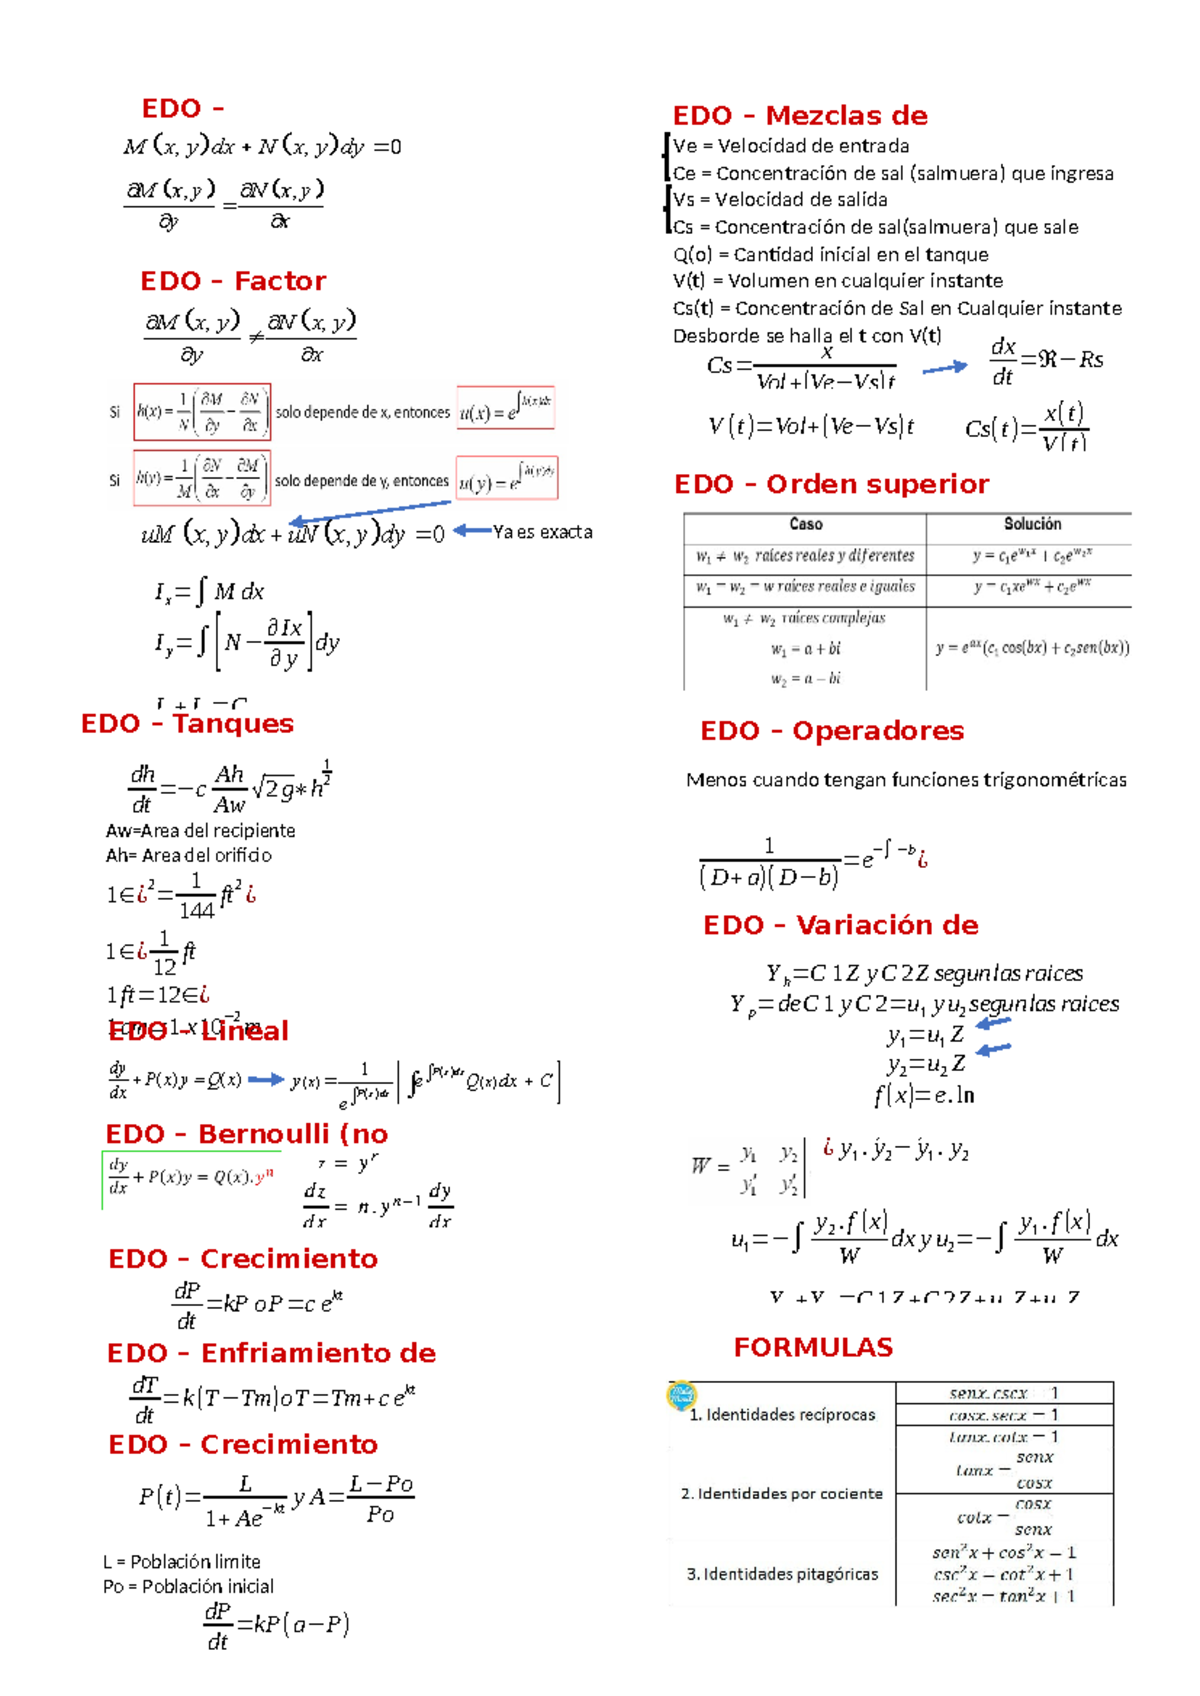 EDO –
M(x, y)dx + N(x, y)dy =0
∂M(x,y)/∂y = ∂N(x,y)/∂x
EDO – Factor
∂M(x, y)/∂y ≠ ∂N(x, y)/∂x
Si h(x) = 1/N (∂M/∂y − ∂N/∂x) solo depende de x, entonces u(x) = e^∫h(x)dx
Si h(y) = 1/M (∂N/∂x − ∂M/∂y) solo depende de y, entonces u(y) = e^∫h(y)dy
uM(x, y)dx + uN(x, y)dy =0 Ya es exacta
I_x = ∫ M dx
I_y = ∫ [N − ∂Ix/∂y] dy
EDO – Tanques
dh/dt =−c Ah/Aw √2g∗h^1/2
Aw=Area del recipiente
Ah= Area del orificio
1∈¿²= 1/144 ft²¿
1∈¿ 1/12 ft
1ft=12∈¿
1cm=1x10⁻²m
EDO – Lineal
dy/dx + P(x)y = Q(x) y(x) = 1/e^∫P(x)dx [∫e^∫P(x)dx Q(x)dx + C]
EDO – Bernoulli (no
dy/dx + P(x)y = Q(x).yⁿ
z = y^r
dz/dx = n.y^n−1 dy/dx
EDO – Crecimiento
dP/dt =kP oP=c e^kt
EDO – Enfriamiento de
dT/dt =k(T−Tm)oT=Tm+c e^kt
EDO – Crecimiento
P(t)= L/1+Ae^−kt y A= L−Po/Po
L = Población limite
Po = Población inicial
dP/dt =kP(a−P)
EDO – Mezclas de
Ve = Velocidad de entrada
Ce = Concentración de sal (salmuera) que ingresa
Vs = Velocidad de salida
Cs = Concentración de sal(salmuera) que sale
Q(o) = Cantidad inicial en el tanque
V(t) = Volumen en cualquier instante
Cs(t) = Concentración de Sal en Cualquier instante
Desborde se halla el t con V(t)
Cs= x/Vol+(Ve−Vs)t dx/dt =ℜ−Rs
V(t)=Vol+(Ve−Vs)t Cs(t)= x(t)/V(t)
EDO – Orden superior
Caso Solución
w₁ ≠ w₂ raíces reales y diferentes y = c₁e^w₁x + c₂e^w₂x
w₁ = w₂ = w raíces reales e iguales y = c₁xe^wx + c₂e^wx
w₁ ≠ w₂ raíces complejas
w₁ = a + bi y = e^ax(c₁ cos(bx) + c₂sen(bx))
w₂ = a − bi
EDO – Operadores
Menos cuando tengan funciones trigonométricas
1/(D+a)(D−b) =e^−∫−b¿
EDO – Variación de
Y_h=C1Z yC2Z segunlas raices
Y_p=deC1yC2=u₁ yu₂segunlas raices
y₁=u₁Z
y₂=u₂Z
f(x)=e.ln
W = |y₁ y₂ y₁′ y₂′| ¿ y₁.ý₂−ý₁.y₂
u₁=−∫ y₂.f(x)/W dx y u₂=−∫ y₁.f(x)/W dx
FORMULAS
1. Identidades recíprocas
senx.cscx = 1
cosx.secx = 1
tanx.cotx = 1
2. Identidades por cociente
tanx = senx/cosx
cotx = cosx/senx
3. Identidades pitagóricas
sen²x + cos²x = 1
csc²x = cot²x + 1
sec²x = tan²x + 1